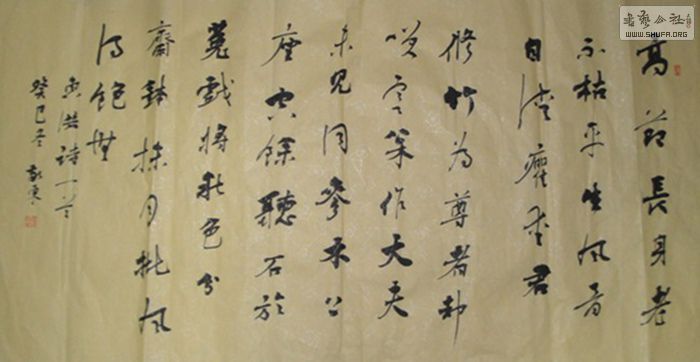 高節長身老
不枯平生風骨
自清癯愛君
修竹為尊者却
笑寒松作大夫
未見同參木上
座空餘聽石於
菟戲將秋色分
齋鉢抹月批風
得飽無
惠洪詩一首
癸巳冬
書藝公社
WWW.SHUFA.ORG